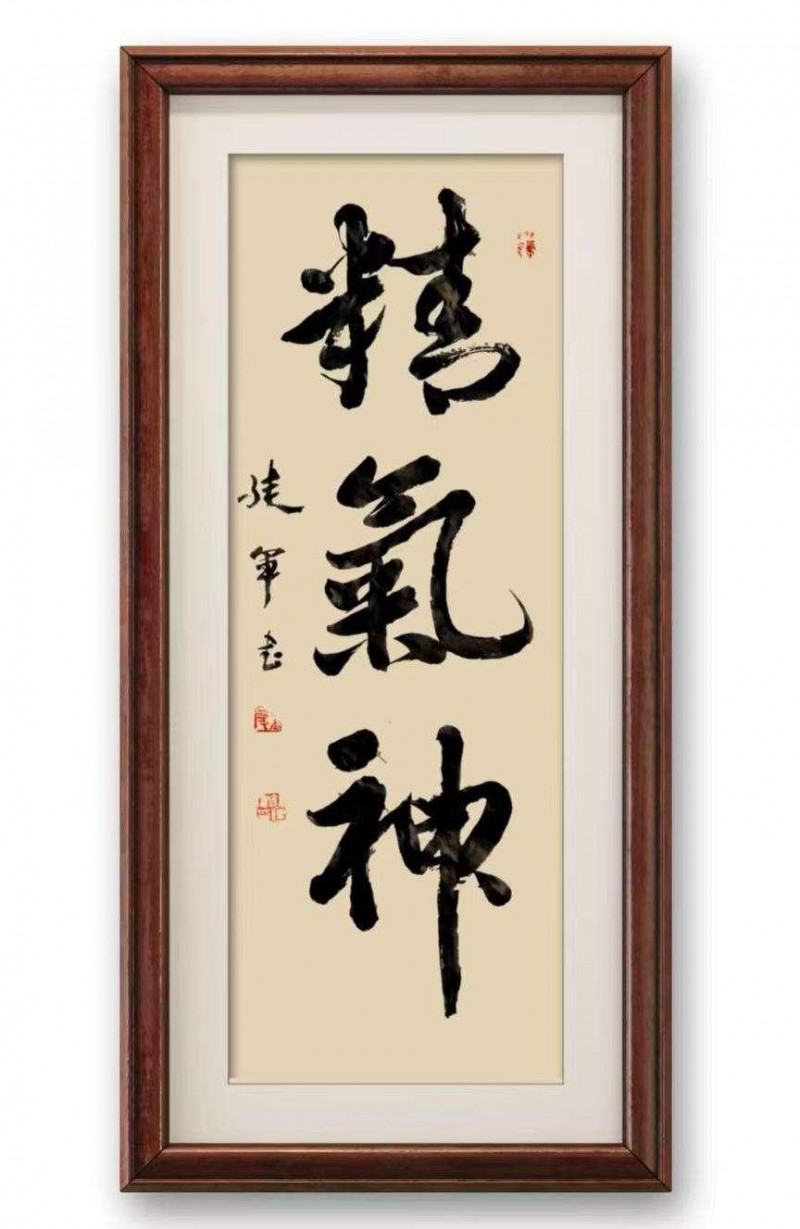 精氣神
建軍书